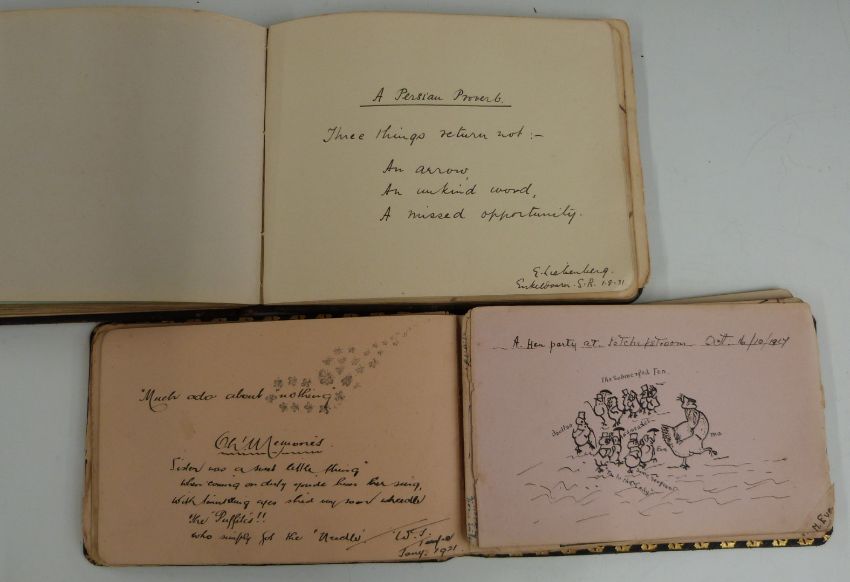 A Persian Proverb.
Three things return not :-
An arrow,
An unkind word,
A missed opportunity.
E. Liebenberg.
Enkeldoorn. S.R. 1-8-31
"Much ado about "nothing"
Oh! Memories.
Sister was a sweet little thing"
when coming on duty you'd hear her sing,
With twinkling eyes she'd
The "Puffits"!!
who simply got the "Needle".
Jany. 1921
A. Hen party at Potchefstroom Oct. 16/10/1917
The Submerged Ten.
Ma